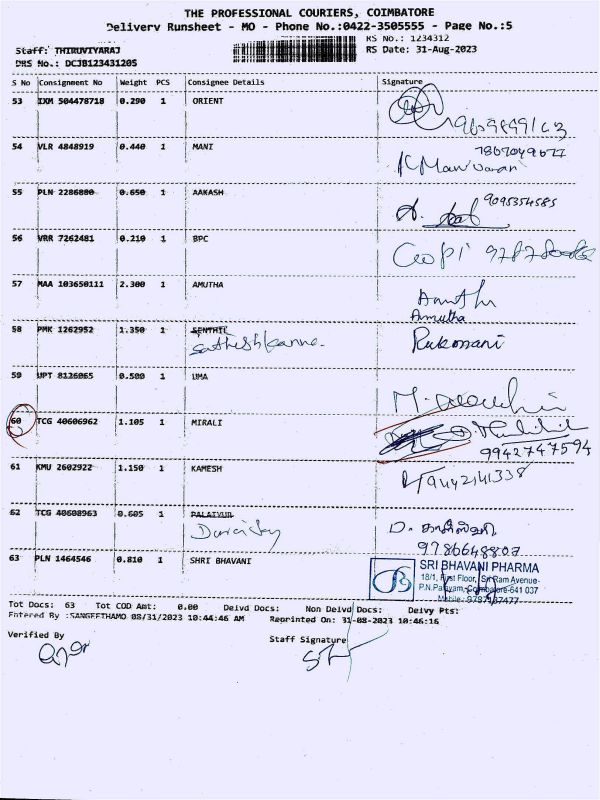 THE PROFESSIONAL COURIERS, COIMBATORE
Delivery Runsheet - MO - Phone No.:0422-3505555 - Page No.:5
RS No.: 1234312
Staff: THIRUVIYARAJ
RS Date: 31-Aug-2023
DRS No.: DCJB123431205
S No Consignment No Weight PCS Consignee Details Signature
53 IXM 504478718 0.290 1 ORIENT
54 VLR 4848919 0.440 1 MANI
7867049677
55 PLN 2286880 0.650 1 AAKASH
9095354585
56 VRR 7262481 0.210 1 BPC
Gopi
57 MAA 103650111 2.300 1 AMUTHA
Amutha
58 PMK 1262952 1.350 1 SENTHIL
Rukmani
59 UPT 8126065 0.500 1 UMA
60 TCG 40606962 1.105 1 MIRALI
9942747594
61 KMU 2602922 1.150 1 KAMESH
9442141338
62 TCG 40608963 0.605 1 PALAIYUR
9786648807
63 PLN 1464546 0.810 1 SHRI BHAVANI
SRI BHAVANI PHARMA
18/1, First Floor, Sri Ram Avenue-
P.N.Palayam, Coimbatore-641 037
Mobile:
Tot Docs: 63 Tot COD Amt: 0.00 Delvd Docs: Non Delvd Docs: Delvy Pts:
Entered By :SANGEETHAMO 08/31/2023 10:44:46 AM Reprinted On: 31-08-2023 10:46:16
Verified By
Staff Signature